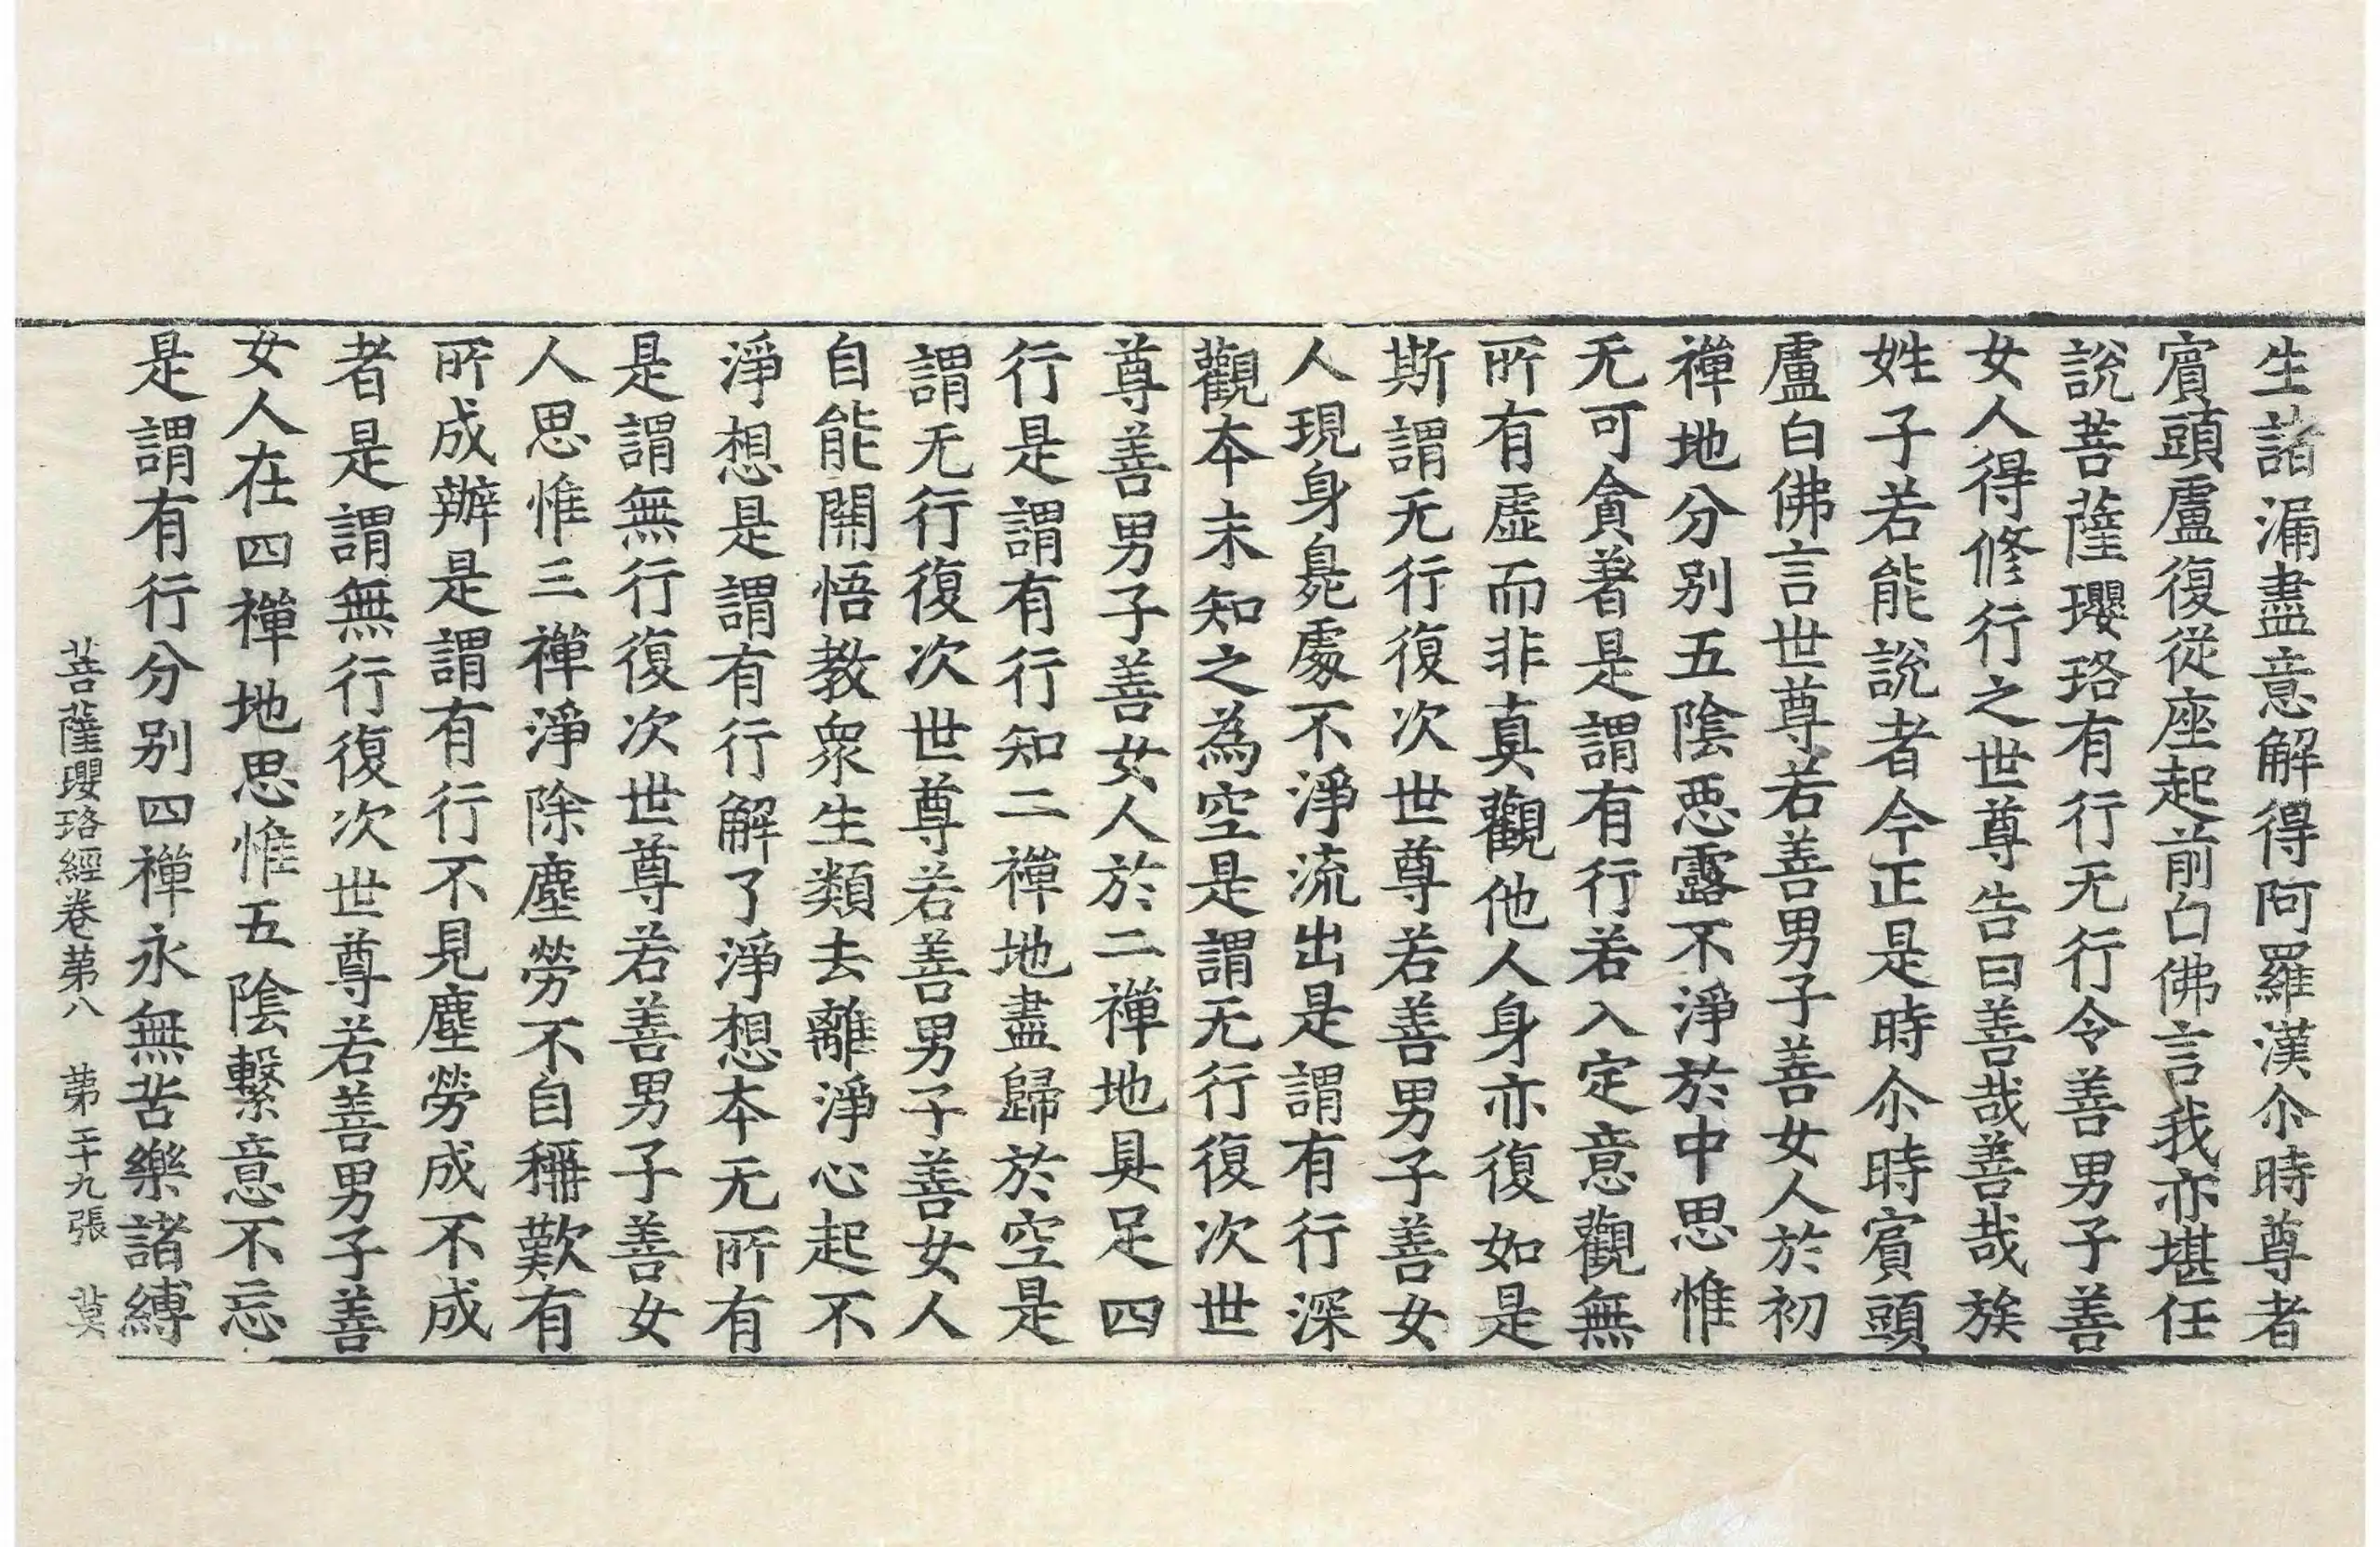 生諸漏盡意解得阿羅漢尒時尊者
賔頭盧復從座起前白佛言我亦堪任
說菩薩瓔珞有行无行令善男子善
女人得修行之世尊告曰善哉善哉族
姓子若能說者今正是時尒時賔頭
盧白佛言世尊若善男子善女人於初
禪地分別五陰惡露不淨於中思惟
无可貪著是謂有行若入定意觀無
所有虛而非真觀他人身亦復如是
斯謂无行復次世尊若善男子善女
人現身臰處不淨流出是謂有行深
觀本末知之為空是謂无行復次世
尊善男子善女人於二禪地具足四
行是謂有行知二禪地盡歸於空是
謂无行復次世尊若善男子善女人
自能開悟教衆生類去離淨心起不
淨想是謂有行解了淨想本无所有
是謂無行復次世尊若善男子善女
人思惟三禪淨除塵勞不自稱歎有
所成辦是謂有行不見塵勞成不成
者是謂無行復次世尊若善男子善
女人在四禪地思惟五陰繫意不忘
是謂有行分別四禪永無苦樂諸縛
菩薩瓔珞經卷苐八 苐二十九張 莫